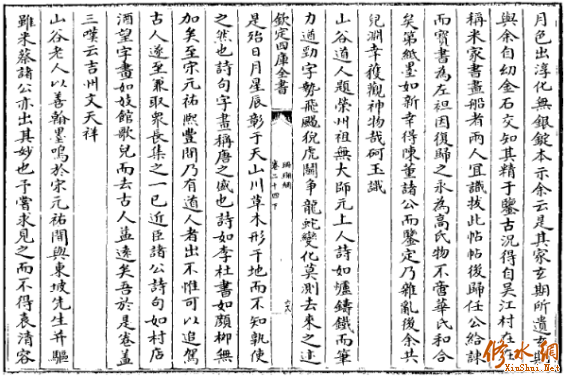 月色出淳化無銀錠本示余云是其家玄期所遺玄期
與余自幼金石交知其精于鑒古況得自吳江村在在
稱米家書畫船者兩人宜識拔此帖帖後歸任公給諫
而寶書為左袒因復歸之永為高氏物不啻華氏和合
矣第紙墨如新幸得陳董諸公而鑒定乃雜亂後余共
兒淵幸獲觀神物哉砢玉識
山谷道人題榮州祖無大師元上人詩如爐鑄鐵而筆
力遒勁字勢飛騰猊虎鬪爭龍蛇變化莫測去来之迹
欽定四庫全書
珊瑚網
卷二十四下
是殆日月星辰彰于天山川草木形于地而不知孰使
之然也詩句字畫稱唐之盛也詩如李杜書如顔柳無
加矣至宋元祐熙豐間乃有道人者出不惟可以追駕
古人遂至兼取衆長集之一己近臣諸公詩句如村店
酒望字畫如妓館歌兒而去古人益遠矣吾於是卷盖
三嘆云吉州文天祥
山谷老人以善翰墨鳴於宋元祐間與東坡先生并驅
雖米蔡諸公亦出其妙也予嘗求見之而不得袁清容
修水網
XinShui.Net